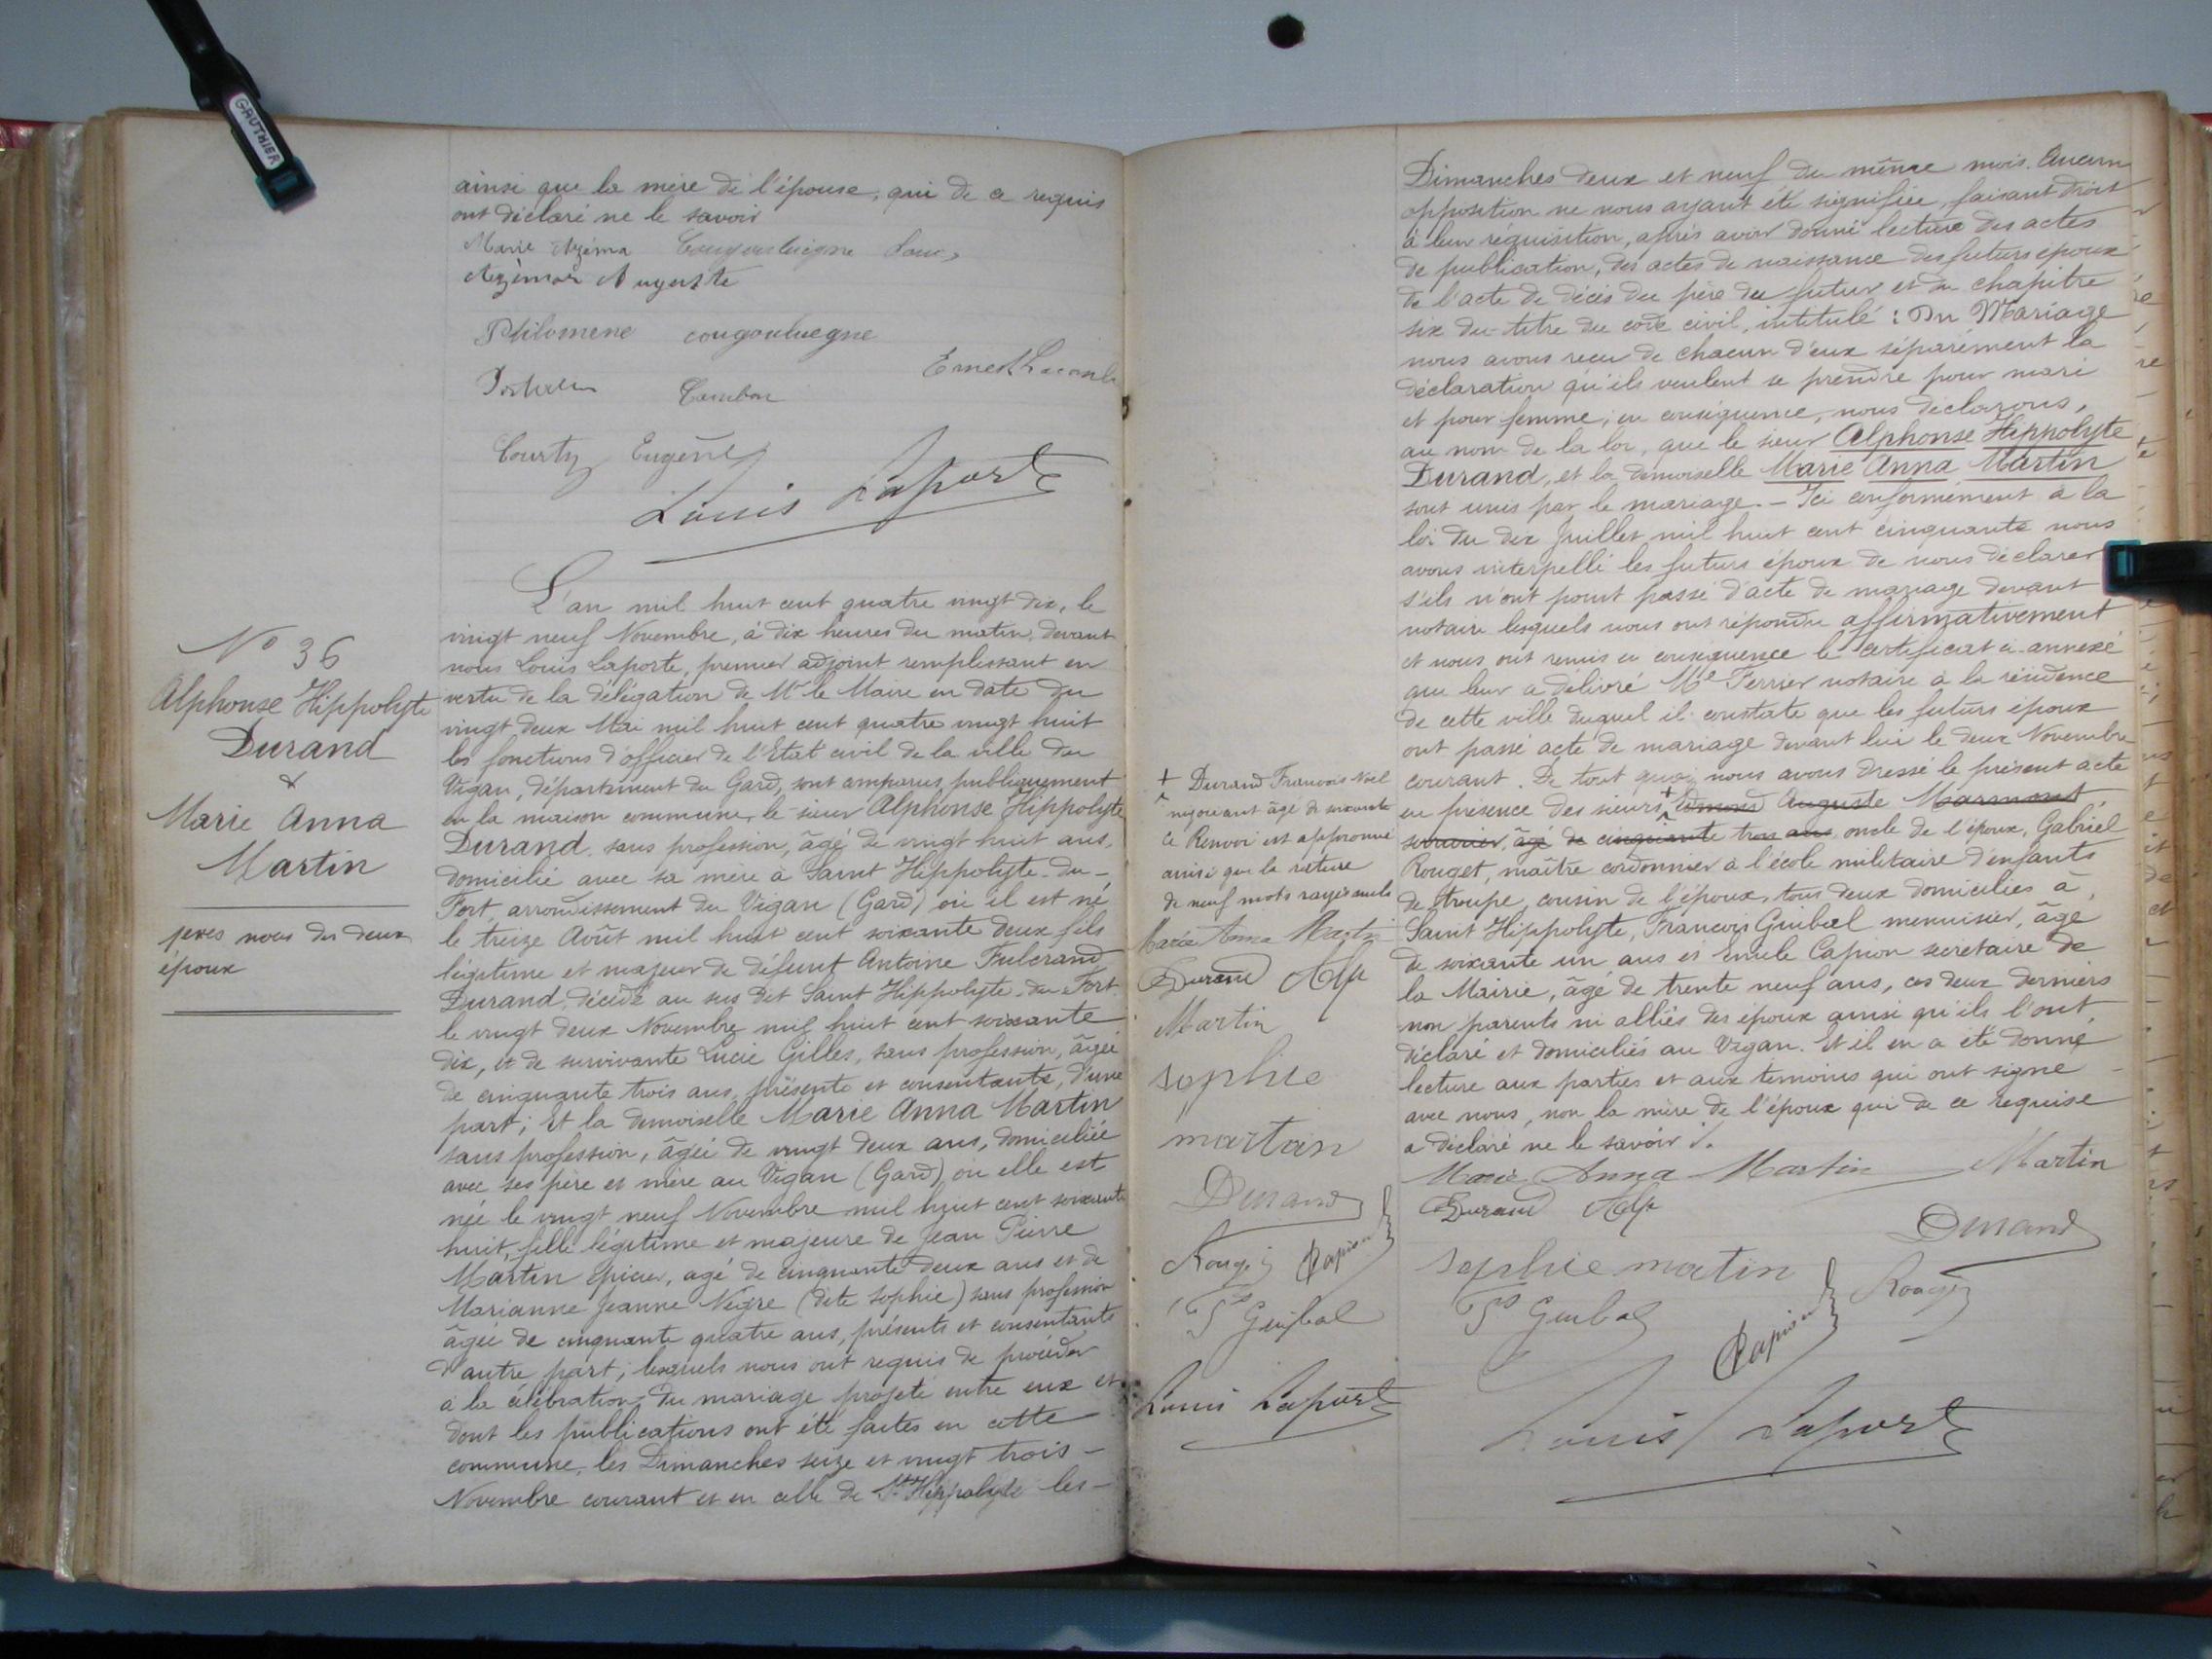 GAUTHIER
ainsi que la mère de l'épouse, qui de ce requis
ont déclaré ne le savoir
Marie Azéma
Auguste
Philomène cougouluegne
Cambon
Courty Eugène
Louis Laporte
N° 36
Alphonse Hippolyte
Durand
&
Marie Anna
Martin
époux
L'an mil huit cent quatre vingt dix, le
vingt neuf Novembre, à dix heures du matin, devant
nous Louis Laporte, premier adjoint remplissant en
vertu de la délégation de Mr le Maire en date du
vingt deux Mai mil huit cent quatre vingt huit
les fonctions d'officier de l'Etat civil de la ville du
Vigan, département du Gard, sont comparus publiquement
en la maison commune, le sieur Alphonse Hippolyte
Durand, sans profession, âgé de vingt huit ans,
domicilié avec sa mère à Saint Hippolyte-du-
Fort, arrondissement du Vigan (Gard) où il est né
le treize Août mil huit cent soixante deux fils
légitime et majeur de défunt Antoine Fulcrand
Durand, décédé au sus dit Saint Hippolyte-du-Fort
le vingt deux Novembre mil huit cent soixante
dix, et de survivante Lucie Gilles, sans profession, âgée
de cinquante trois ans, présente et consentante, d'une
part; Et la demoiselle Marie Anna Martin
sans profession, âgée de vingt deux ans, domiciliée
avec ses père et mère au Vigan (Gard), où elle est
née le vingt neuf Novembre mil huit cent soixante
huit, fille légitime et majeure de Jean Pierre
Martin épicier, agé de cinquante deux ans et de
Marianne Jeanne Nègre (dite Sophie) sans profession
âgée de cinquante quatre ans, présents et consentants
d'autre part; lesquels nous ont requis de procéder
à la célébration du mariage projeté entre eux et
dont les publications ont été faites en cette
commune, les Dimanches seize et vingt trois-
Novembre courant et en celle de St Hippolyte les-
+ Durand François Noël
négociant âgé de soixante
Ce Renvoi est approuvé
ainsi que la rature
de neuf mots rayés nuls
Marie Anna Martin
Durand Alp
Martin
sophie
martin
Durand
Rouget Capion
Fs Guibal
Louis Laporte
Dimanches deux et neuf du même mois. Aucune
opposition ne nous ayant été signifiée, faisant droit
à leur réquisition, après avoir donné lecture des actes
de publication, des actes de naissance des futurs époux
de l'acte de décès du père du futur et du chapitre
six du titre du code civil, intitulé: Du Mariage
nous avons reçu de chacun d'eux séparément la
déclaration qu'ils veulent se prendre pour mari
et pour femme; en conséquence, nous déclarons,
au nom de la loi, que le sieur Alphonse Hippolyte
Durand, et la demoiselle Marie Anna Martin
sont unis par le mariage. - Ici conformément à la
loi du dix Juillet mil huit cent cinquante nous
avons interpellé les futurs époux de nous déclarer
s'ils n'ont point passé d'acte de mariage devant
notaire lesquels nous ont répondu affirmativement
et nous ont remis en conséquence le certificat ci-annexé
que leur a délivré Me Ferrier notaire à la résidence
de cette ville duquel il constate que les futurs époux
ont passé acte de mariage devant lui le deux Novembre
courant. De tout quoi, nous avons dressé le présent acte
en présence des sieurs + Edmond Auguste Marmont
serrurier, âgé de cinquante trois ans, oncle de l'époux, Gabriel
Rouget, maître cordonnier à l'école militaire d'enfants
de troupe, cousin de l'époux, tous deux domiciliés à
Saint Hippolyte, François Guibal menuisier, âgé
de soixante un ans et Emile Capion secrétaire de
la Mairie, âgé de trente neuf ans, ces deux derniers
non parents ni alliés des époux ainsi qu'ils l'ont
déclaré et domiciliés au Vigan. Et il en a été donné
lecture aux parties et aux témoins qui ont signé
avec nous, non la mère de l'époux qui de ce requise
a déclaré ne le savoir./.
Marie Anna Martin Martin
Durand Alp
Durand
sophie martin
Rouget
Fs Guibal
Capion
Louis Laporte